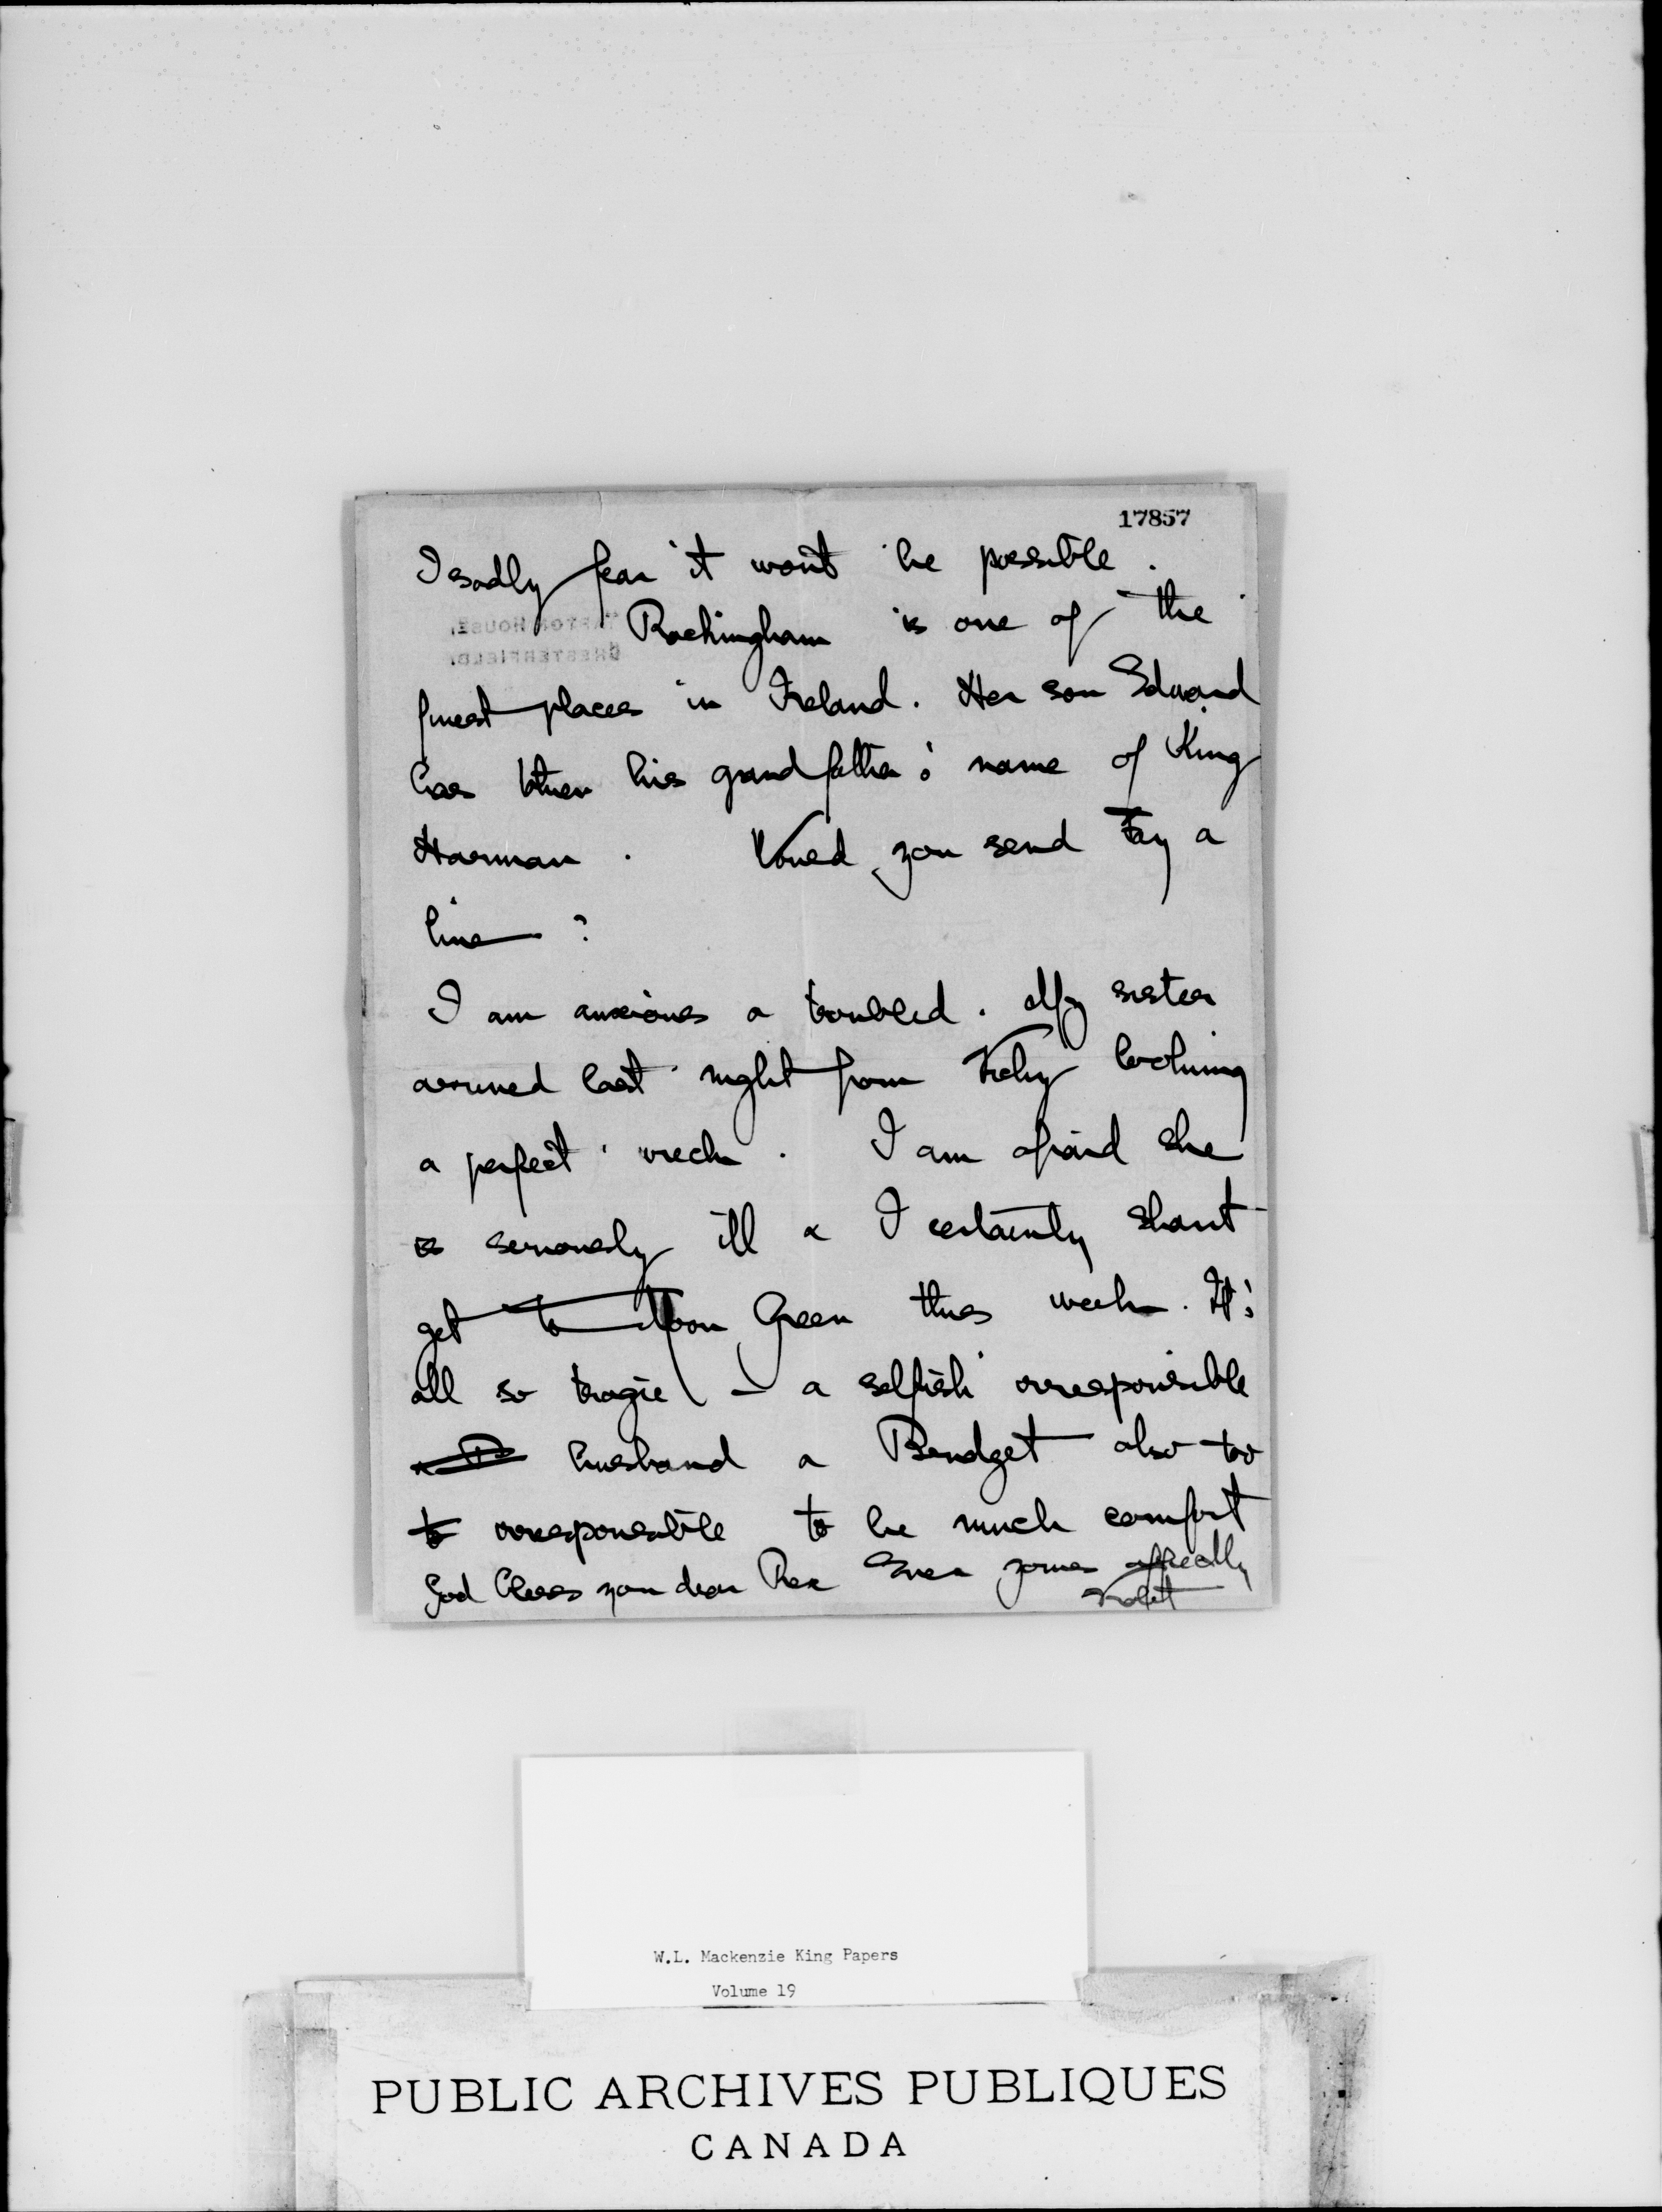 17857
I sadly fear it wont be possible.
BARTON HOUSE,
CHESTERFIELD.
Rockingham is one of the
finest places in Ireland. Her son Edward
has taken his grandfather's name of King
Harman. Would you send Fay a
line?
I am anxious & troubled. My sister
arrived last night from Vichy looking
a perfect wreck. I am afraid she
is seriously ill & I certainly shant
get to Moor Green this week. It's
all so tragic - a selfish irresponsible
husband & Bridget also too
to irresponsible to be much comfort
God bless you dear Rex Ever yours affectly
Violet
W.L. Mackenzie King Papers
Volume 19
PUBLIC ARCHIVES PUBLIQUES
CANADA